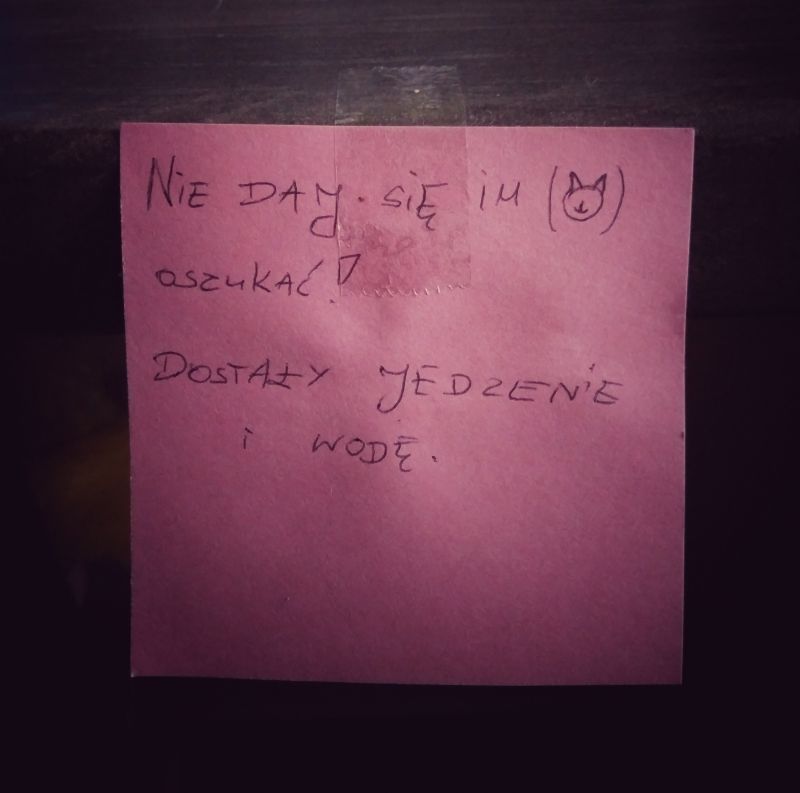 NiE DAJ SIĘ IM ( )
OSZUKAĆ!
DOSTAŁY JEDZENIE
i WODĘ.